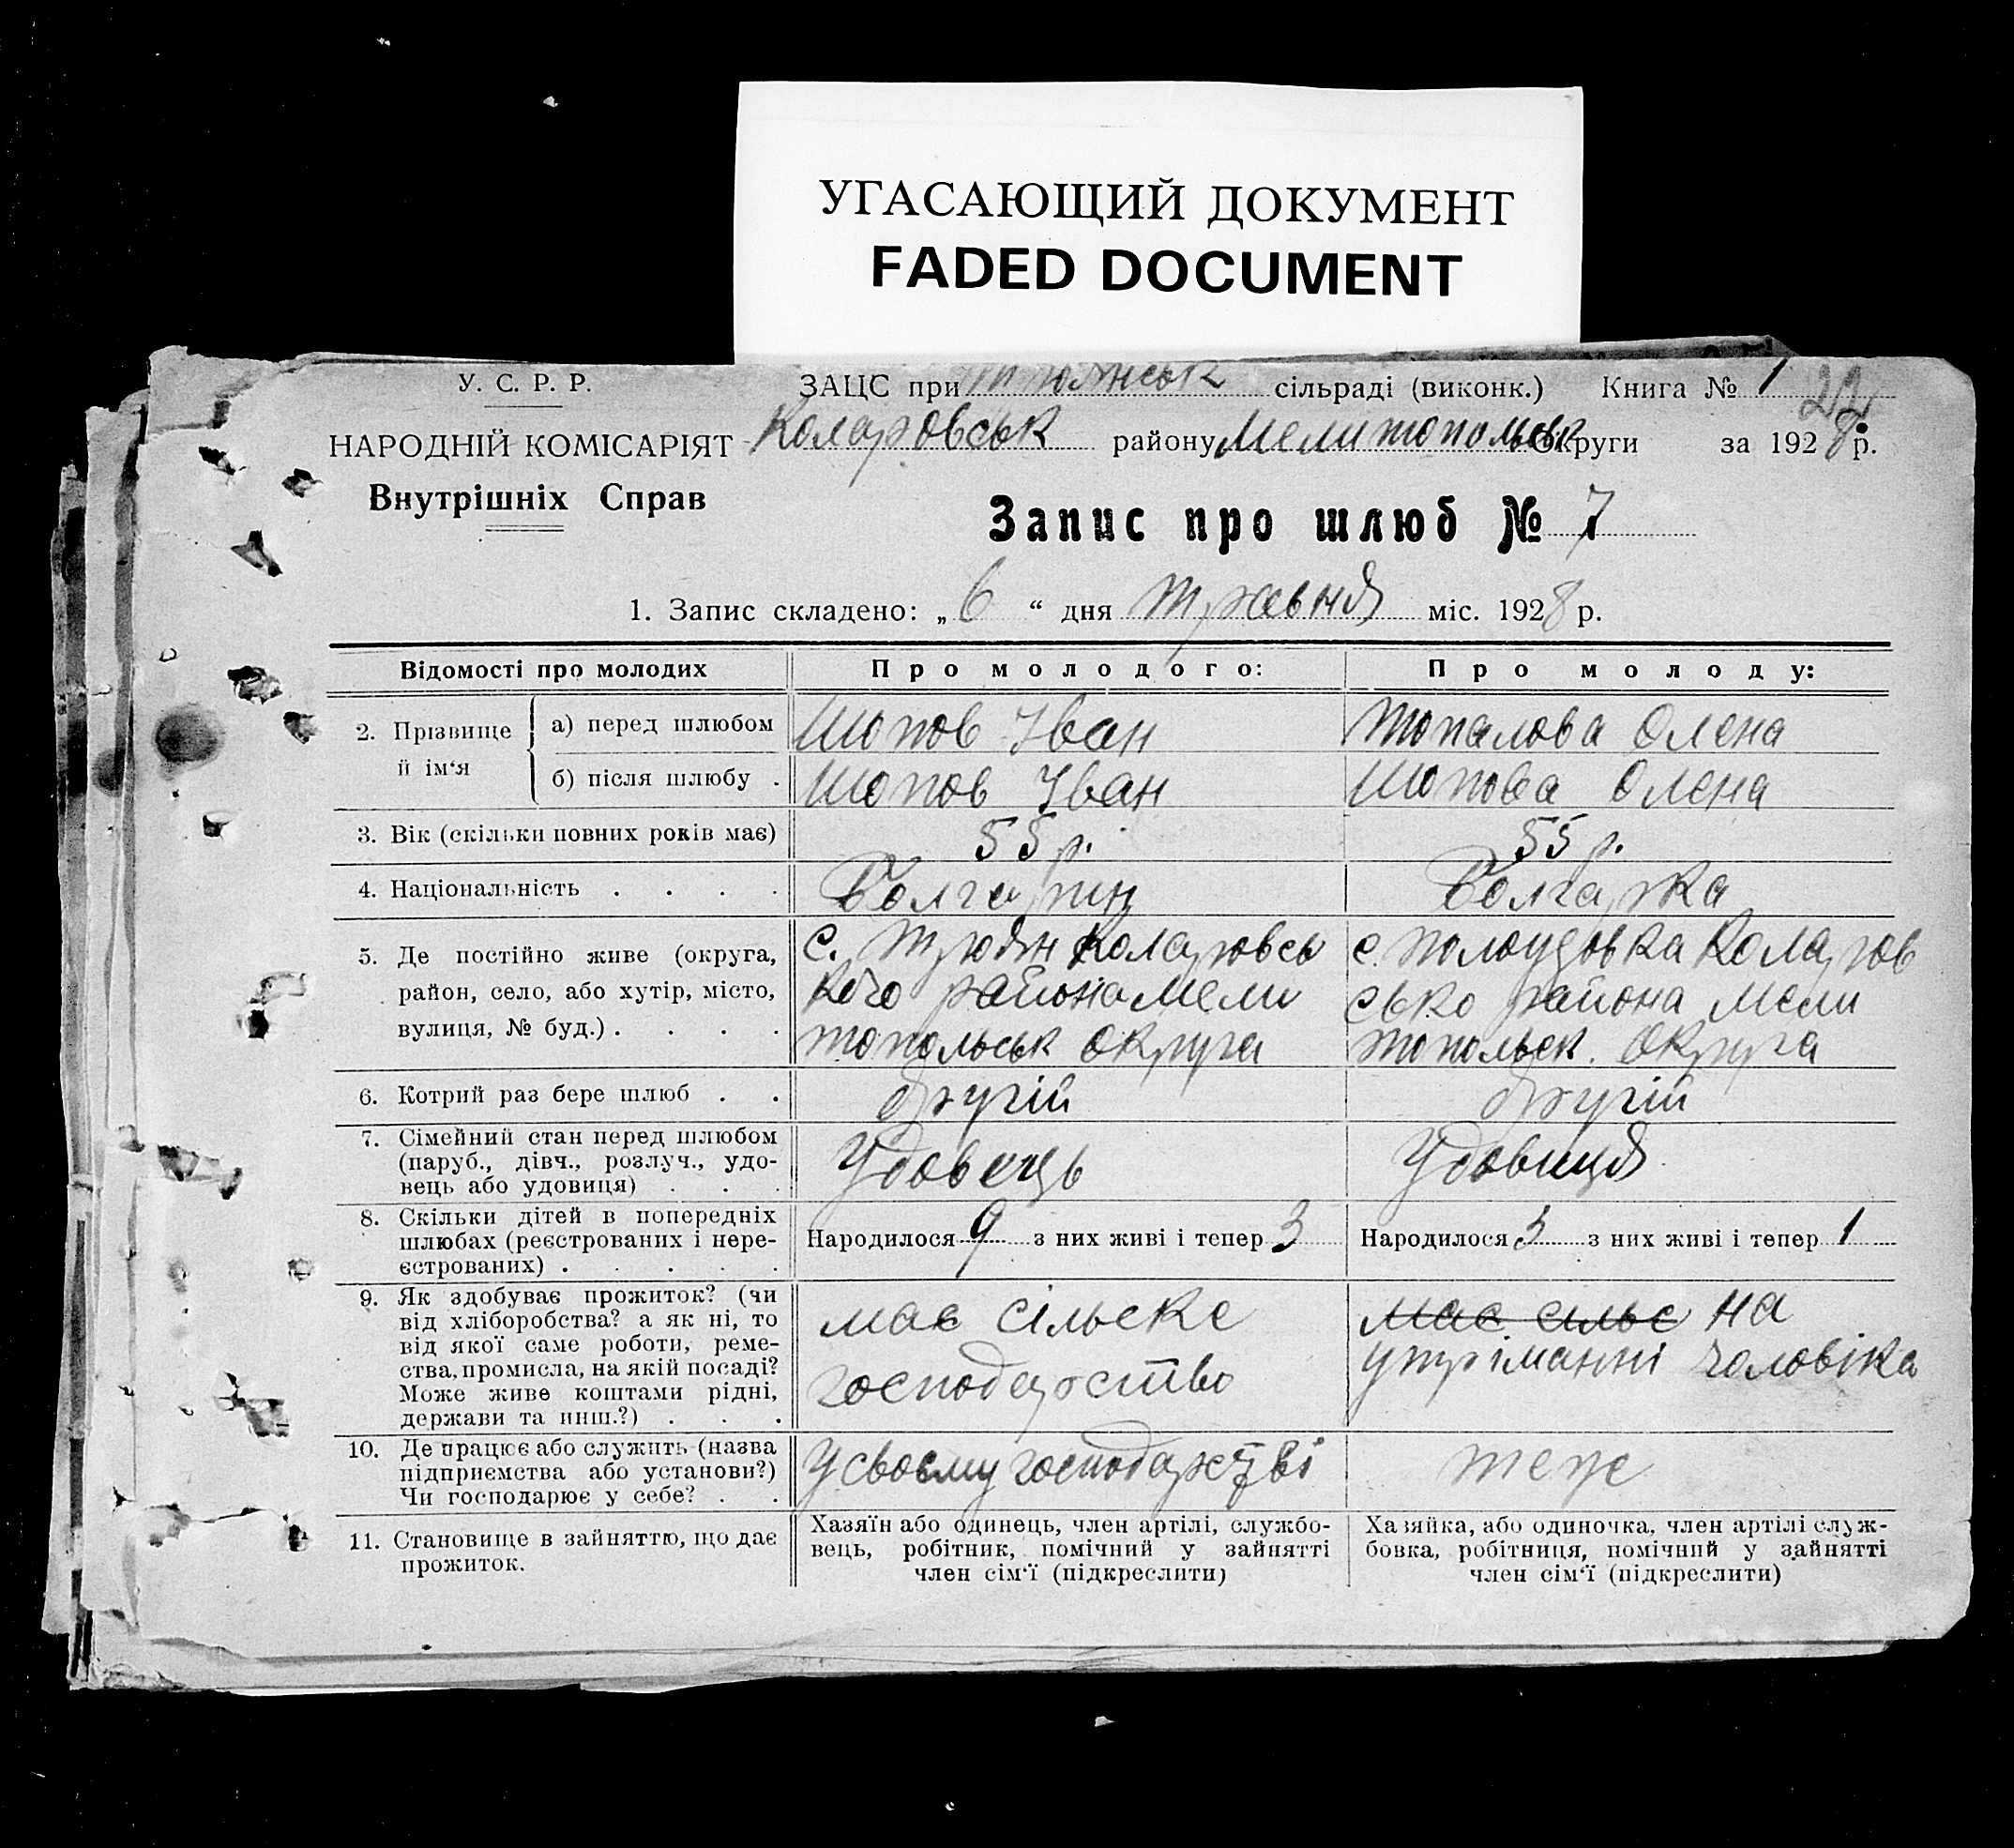 УГАСАЮЩИЙ ДОКУМЕНТ
FADED DOCUMENT
У. С. Р. Р.
ЗАЦС при сільраді (виконк.) Книга № 1
22
НАРОДНІЙ КОМІСАРІЯТ Коларовськ району Мелитопольськ округи за 1928 р.
Внутрішніх Справ
Запис про шлюб № 7
1. Запис складено: „ 6 “ дня травня міс. 1928 р.
Відомості про молодих
Про молодого:
Про молоду:
2. Прізвище й ім‘я
а) перед шлюбом
Шопов Іван
Топалова Олена
б) після шлюбу .
Шопов Іван
Шопова Олена
3. Вік (скільки повних років має)
55 р.
55 р.
4. Національність . . . .
Болгарин
Болгарка
5. Де постійно живе (округа,
район, село, або хутір, місто,
вулиця, № буд.) . . . .
с. Троян Коларовсь
кого района Мели
топольськ округа
с. Полоузовка Коларов
сько района Мели
топольск. округа
6. Котрий раз бере шлюб . .
другій
другій
7. Сімейний стан перед шлюбом
(паруб., дівч., розлуч., удо-
вець або удовиця) . . .
Удовець
Удовиця
8. Скільки дітей в попередніх
шлюбах (реєстрованих і нере-
єстрованих) . . . . .
Народилося 9 з них живі і тепер 3
Народилося 3 з них живі і тепер 1
9. Як здобуває прожиток? (чи
від хліборобства? а як ні, то
від якої саме роботи, реме-
ства, промисла, на якій посаді?
Може живе коштами рідні,
держави та инш.?) . . .
має сільске
господарство
має сильс на
утріманні чоловіка
10. Де працює або служить (назва
підприємства або установи?)
Чи господарює у себе? . .
У своєму господарстві
теже
11. Становище в зайняттю, що дає
прожиток.
Хазяїн або одинець, член артілі, службо-
вець, робітник, помічний у зайнятті
член сім‘ї (підкреслити)
Хазяйка, або одиночка, член артілі служ-
бовка, робітниця, помічний у зайнятті
член сім‘ї (підкреслити)